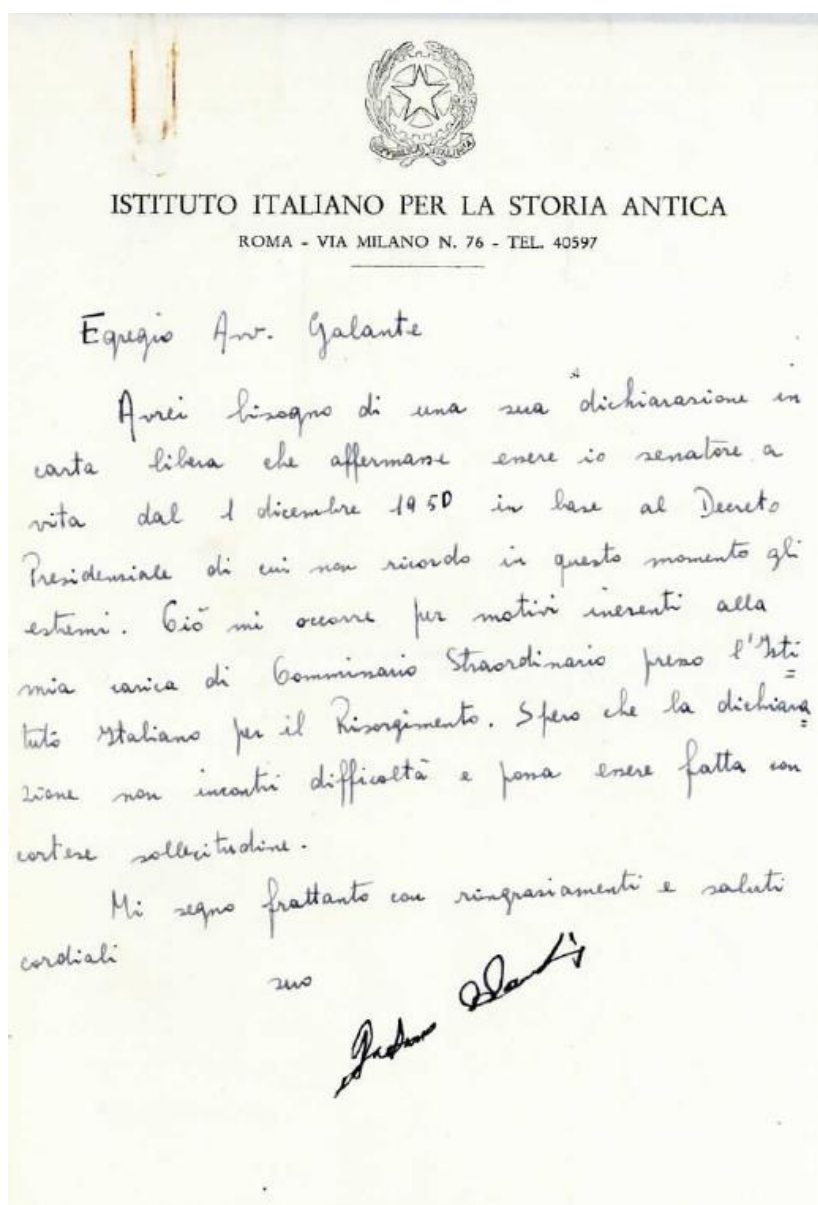 ISTITUTO ITALIANO PER LA STORIA ANTICA
ROMA - VIA MILANO N. 76 - TEL. 40597
Egregio Avv. Galante
Avrei bisogno di una sua dichiarazione in
carta libera che affermasse essere io senatore a
vita dal 1 dicembre 1950 in base al Decreto
Presidenziale di cui non ricordo in questo momento gli
estremi. Ciò mi occorre per motivi inerenti alla
mia carica di Commissario Straordinario presso l'Isti=
tuto Italiano per il Risorgimento. Spero che la dichiara=
zione non incontri difficoltà e possa essere fatta con
cortese sollecitudine.
Mi segno frattanto con ringraziamenti e saluti
cordiali
suo
Gaetano